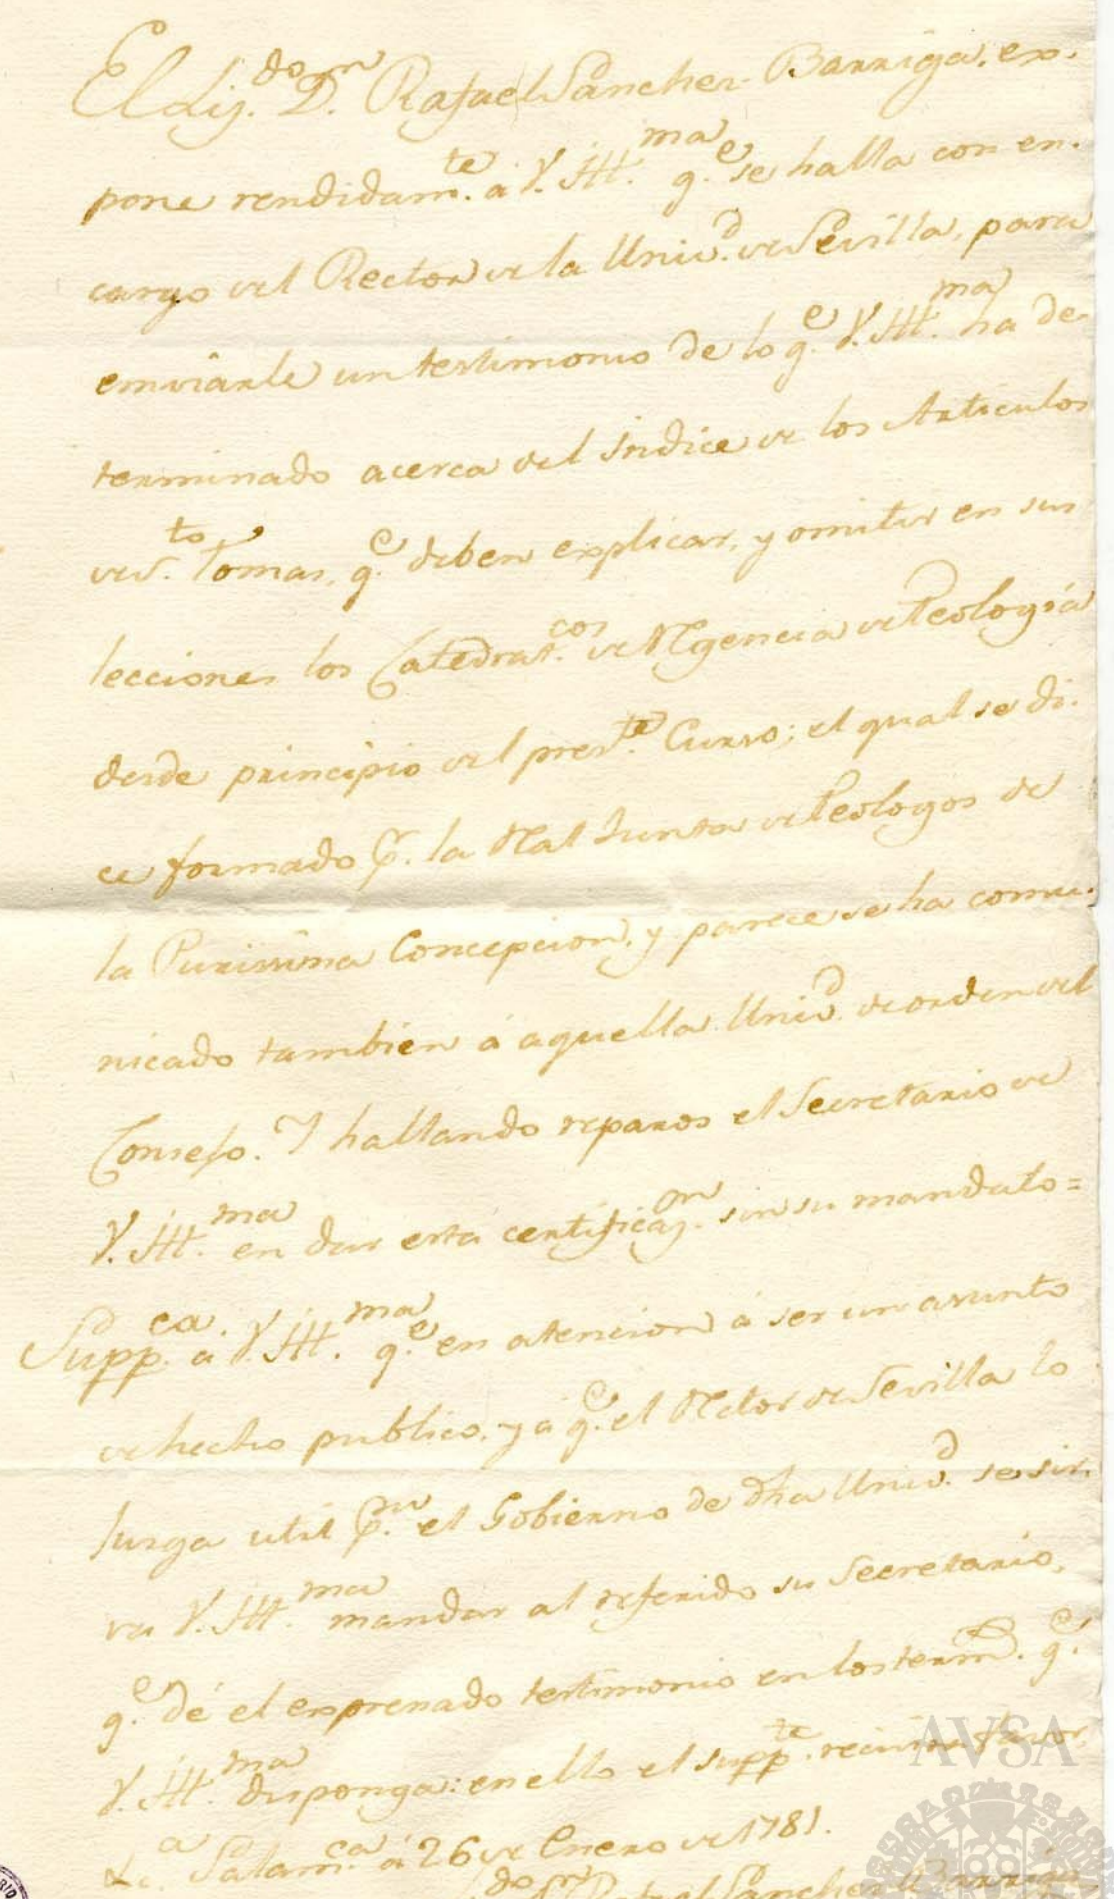 El Lij.do D.n Rafael Sanchez Barriga, ex-
pone rendidam.te a V. Ill.ma q.e se halla con en-
cargo del Rector de la Univ.d de Sevilla, para
embiarle un testimonio de lo q.e V. Ill.ma ha de-
terminado acerca del Indice de los Articulos
de S.to Tomas, q.e deben explicar, y omitir en sus
lecciones los Catedrat.cos de Regencia de Teologia
desde principio del pres.te Curso; el qual se di-
ce formado p.r la Real Junta de Teologos de
la Purissima Concepcion, y parece se ha comu-
nicado tambien á aquella Univ.d de orden del
Consejo. Y hallando reparos el Secretario de
V. Ill.ma en dar esta certificaz.n sin su mandato=
Supp.ca a V. Ill.ma q.e en atencion á ser un asunto
de hecho publico, y á q.e el Retor de Sevilla lo
juzga util p.ra el Gobierno de dha Univ.d se sir-
va V. Ill.ma mandar al referido su Secretario,
q.e dé el expresado testimonio en los term.s q.e
V. Ill.ma disponga: en ello el supp.te recivira favor.
&c.a Salam.ca á 26 de Enero de 1781.
do D.n Rafael Sanchez Barriga
AVSA